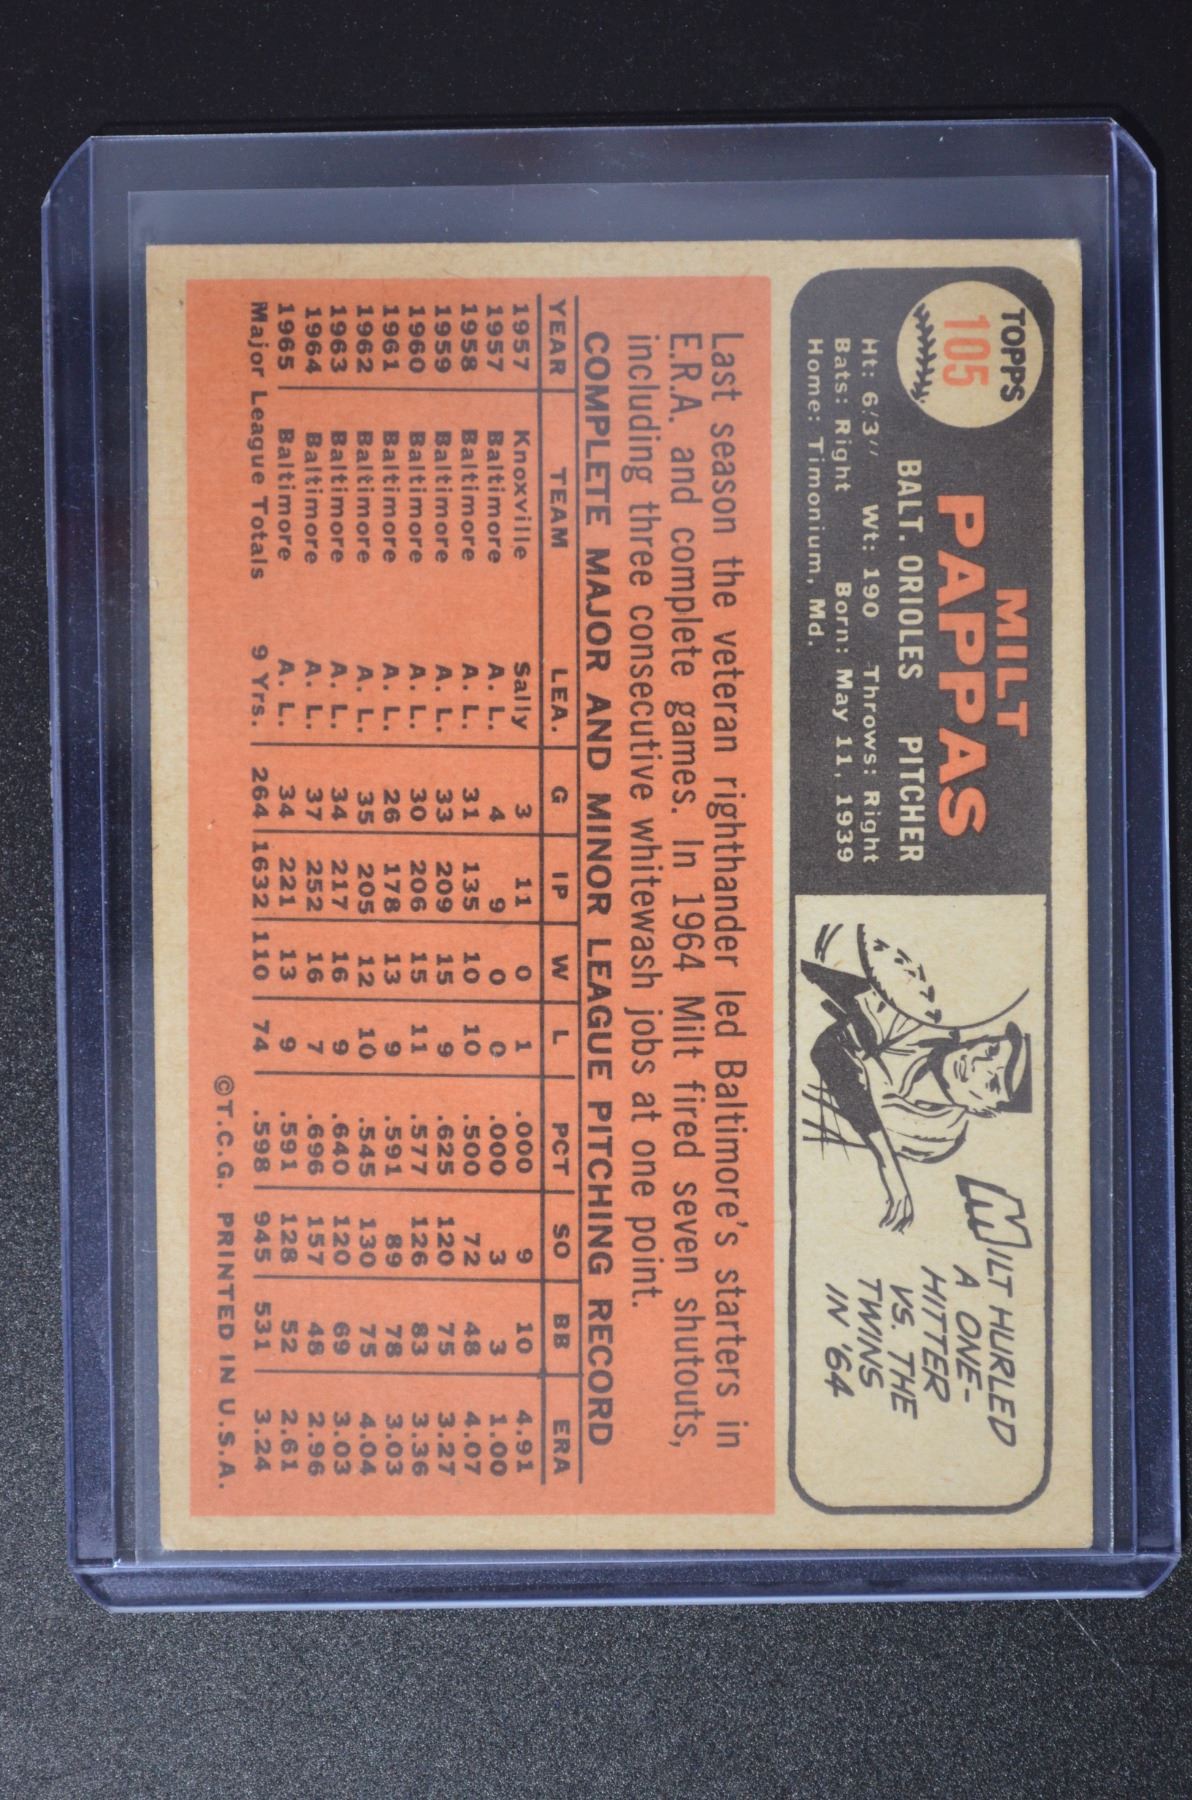 TOPPS
105
MILT
PAPPAS
BALT. ORIOLES PITCHER
Ht: 6'3" Wt: 190 Throws: Right
Bats: Right Born: May 11, 1939
Home: Timonium, Md.
MILT HURLED
A ONE-
HITTER
VS. THE
TWINS
IN '64
Last season the veteran righthander led Baltimore's starters in
E.R.A. and complete games. In 1964 Milt fired seven shutouts,
including three consecutive whitewash jobs at one point.
COMPLETE MAJOR AND MINOR LEAGUE PITCHING RECORD
YEAR TEAM LEA. G IP W L PCT SO BB ERA
1957 Knoxville Sally 3 11 0 1 .000 9 10 4.91
1957 Baltimore A. L. 4 9 0 0 .000 3 3 1.00
1958 Baltimore A. L. 31 135 10 10 .500 72 48 4.07
1959 Baltimore A. L. 33 209 15 9 .625 120 75 3.27
1960 Baltimore A. L. 30 206 15 11 .577 126 83 3.36
1961 Baltimore A. L. 26 178 13 9 .591 89 78 3.03
1962 Baltimore A. L. 35 205 12 10 .545 130 75 4.04
1963 Baltimore A. L. 34 217 16 9 .640 120 69 3.03
1964 Baltimore A. L. 37 252 16 7 .696 157 48 2.96
1965 Baltimore A. L. 34 221 13 9 .591 128 52 2.61
Major League Totals 9 Yrs. 264 1632 110 74 .598 945 531 3.24
©T.C.G. PRINTED IN U.S.A.